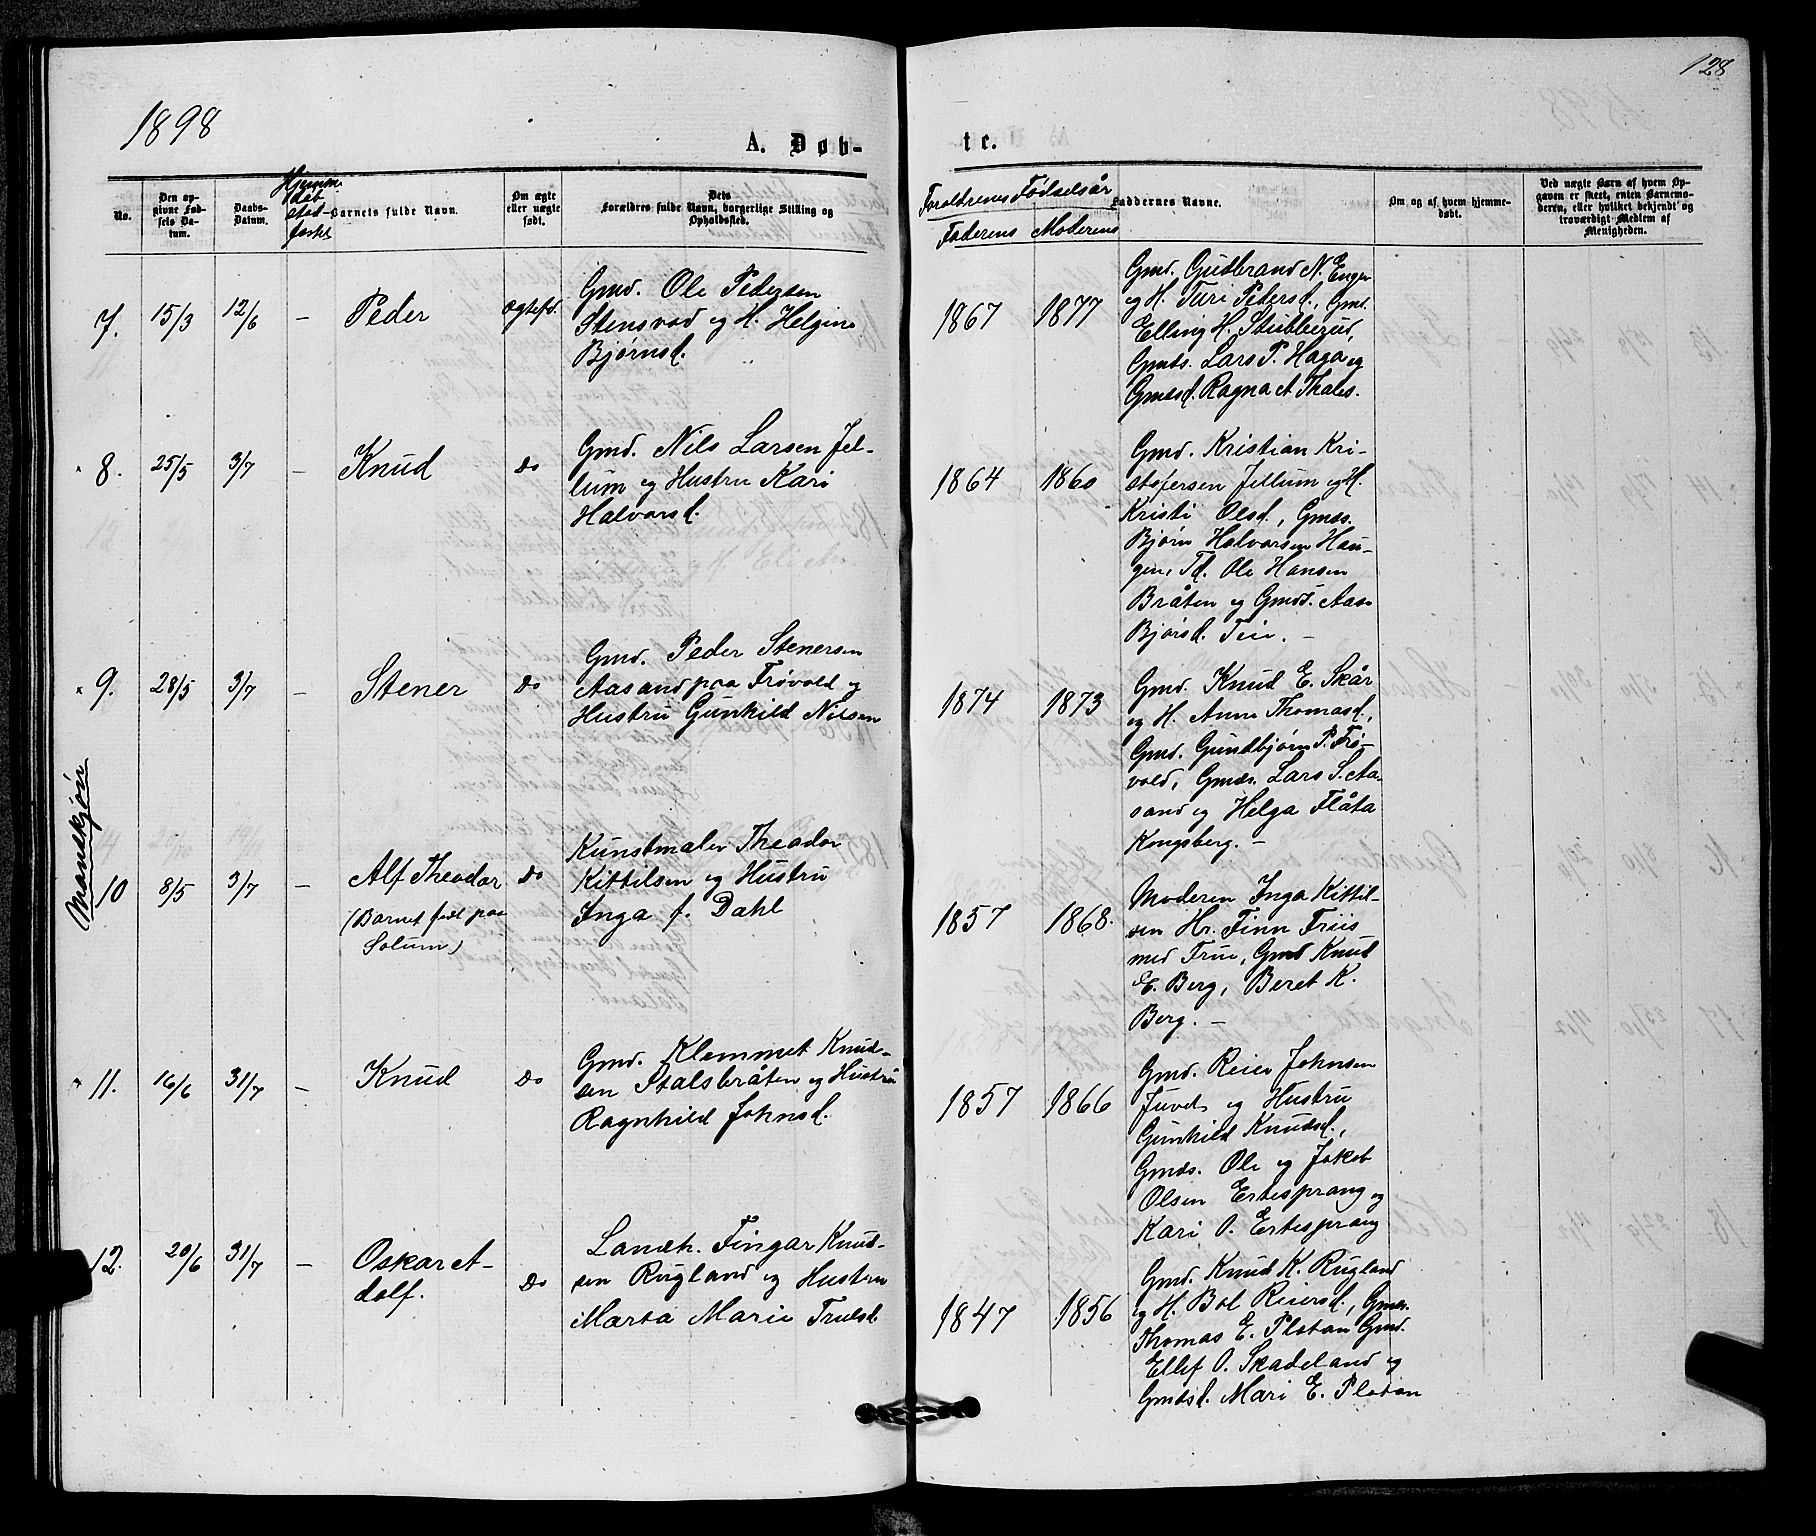 128
1898
A. Døb-
te.
No.
Den op-
givne Fød-
sels Da-
tum.
Daabs-
Datum.
Hjemme
døb
stad-
fæstet
Barnets fulde Navn.
Om ægte
eller uægte
født.
Dets
Forældres fulde Navn, borgerlige Stilling og
Opholdssted.
Forældrenes Fødselsår
Faderens Moderens
Faddernes Navne.
Om og af hvem hjemme-
døbt.
Ved uægte Barn af hvem Op-
gaven er skeet, enten Barnemo-
deren, eller hvilket bekjendt og
troværdigt Medlem af
Menigheden.
Mandkjøn
7. 15/3 12/6 — Peder ægtefd.
Gmd. Ole Pedersen
Stensvad og H. Helgine
Bjørnsd.
1867 1877
Gmd. Gudbrand N. Enger
og H. Turi Pedersd., Gmd.
Elling H. Stubberud,
Gmds. Lars P. Haga og
Gmdsd. Ragna A Thales.
8. 25/5 3/7 — Knud Do
Gmd. Nils Larsen Jel-
lum og Hustru Kari
Halvorsd.
1864 1860
Gmd. Kristian Kri-
stofersen Jellum og H.
Kristi Olsd., Gmds.
Bjørn Halvorsen Hau-
gen, Td. Ole Hansen
Bråten og Gmdt. Aase
Bjørsd. Teie. —
9. 28/5 3/7 — Stener Do
Gmd. Peder Stenersen
Aasand paa Frøvold og
Hustru Gunhild Nilsen
1874 1873
Gmd. Knud E. Skår
og H. Anne Thomasd.,
Gmd. Gundbjørn P. Frø-
vold, Gmds. Lars S. Aa-
sand og Helga Flåta
Kongsberg. —
10 8/5 3/7 — Alf Theodor Do
(Barnet født paa
Solum)
Kunstmaler Theador
Kittilsen og Hustru
Inga f. Dahl
1857 1868.
Moderen Inga Kittil-
sen Hr. Finn Friis
med Frue, Gmd Knud
E. Berg, Beret K.
Berg. —
11. 16/6 31/7 — Knud Do
Gmd. Klemmet Knud-
sen Stalsbråten og Hustru
Ragnhild Johnsd.
1857 1866
Gmd. Reier Johnsen
Juvet og Hustru
Gunhild Knudsd.,
Gmds. Ole og Jakob
Olsen Ertesprang og
Kari O. Ertesprang
12. 20/6 31/7 — Oskar A-
dolf. Do
Landh. Fingar Knud-
sen Rugland og Hustru
Marta Marie Truesd.
1847 1856
Gmd. Knud K. Rugland
og H. Bol Reiersd., Gmds.
Thomas E. Platan Gmd.
Ellef O. Skadeland og
Gmdsd. Mari E. Platan